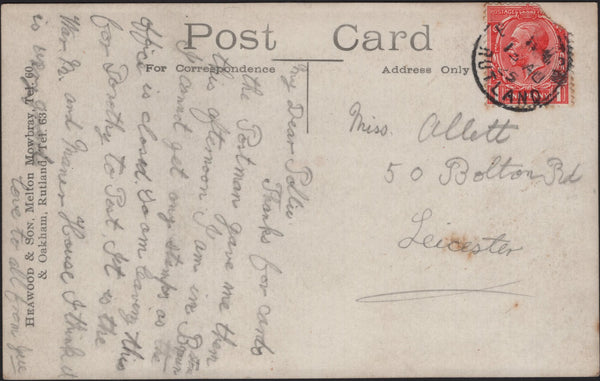 Post Card
For Correspondence
Address Only
Miss. Allett
50 Bolton Rd
Leicester
My Dear Pollie
Thanks for cards
the Postman gave me them
this afternoon I am in
I cannot get any stamps as the
office is closed. So am leaving this
for Dorothy to Post It is the
War M. and Manor House I think it
is
love to all from
HEAWOOD & SON, Melton Mowbray, Tel. 60,
& Oakham, Rutland, Tel. 63
POSTAGE
RUTLAND